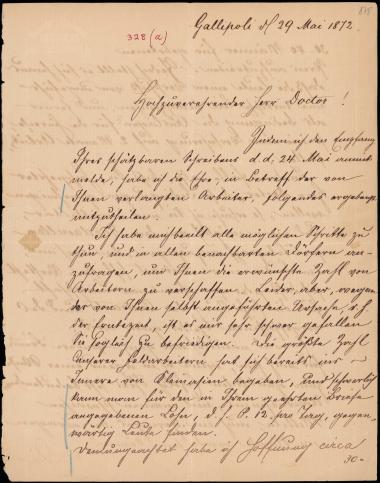 Gallipoli d/ 29 Mai 1872.
328 (a)
Hochzuverehrender Herr Doctor!
Indem ich den Empfang
Ihres schätzbaren Schreibens d. d. 24. Mai anmit
melde, habe ich die Ehre, in Betreff der von
Ihnen verlangten Arbeiter, folgendes ergebenst
mitzutheilen.
Ich habe nicht alle möglichen Schritte zu
thun, und in allen benachbarten Dörfern an-
zufragen, um Ihnen die erwünschte Zahl von
Arbeitern zu verschaffen. Leider, aber, wegen
der von Ihnen selbst angeführten Ursache, d. h.
der Erntezeit, ist es mir sehr schwer gefallen
Sie sogleich zu befriedigen. Die größte Zahl
unserer Feldarbeitern hat sich bereits ins
Innere von Kleinasien begeben, und schwerlich
kann man für den in Ihrem geehrten Briefe
angegebenen Lohn, d. h. P. 12. pro Tag, gegen-
wärtig Leute finden.
Demungeachtet habe ich Hoffnung circa
30-